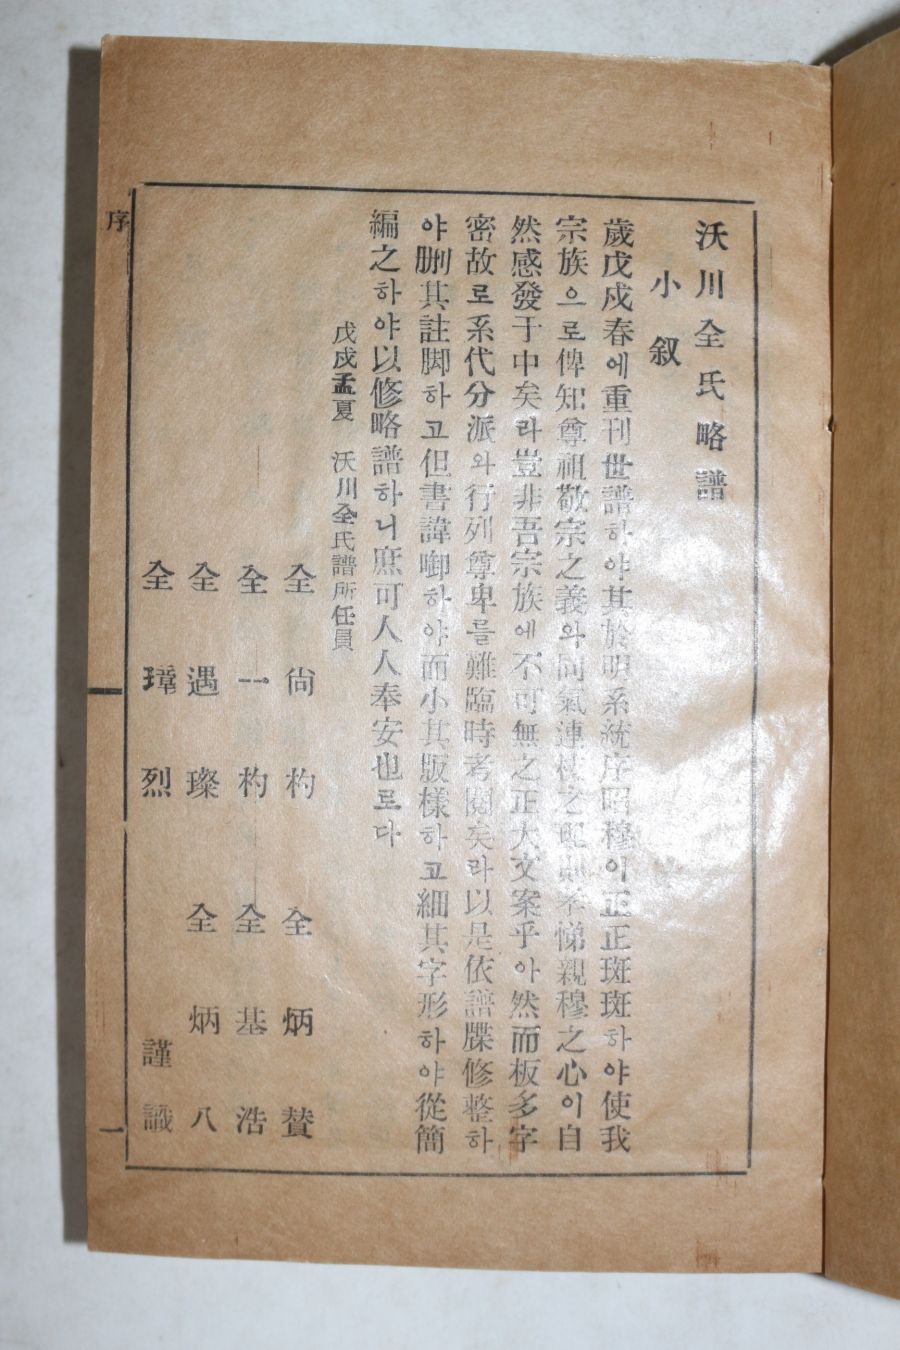 沃川全氏略譜
小敍
歲戊戌春에重刊世譜하야其於明系統序昭穆이正正斑斑하야使我
宗族으로俾知尊祖敬宗之義와同氣連枝之 孝悌親穆之心이自
然感發于中矣라豈非吾宗族에不可無之正大文案乎아然而板多字
密故로系代分派와行列尊卑를難臨時考閱矣라以是依譜牒修整하
야刪其註脚하고但書諱啣하야而小其版樣하고細其字形하야從簡
編之하야以修略譜하니庶可人人奉安也로다
戊戌孟夏 沃川全氏譜所任員
全尙杓 全炳賛
全一杓 全基浩
全遇璨 全炳八
全璋烈 謹識
序
一